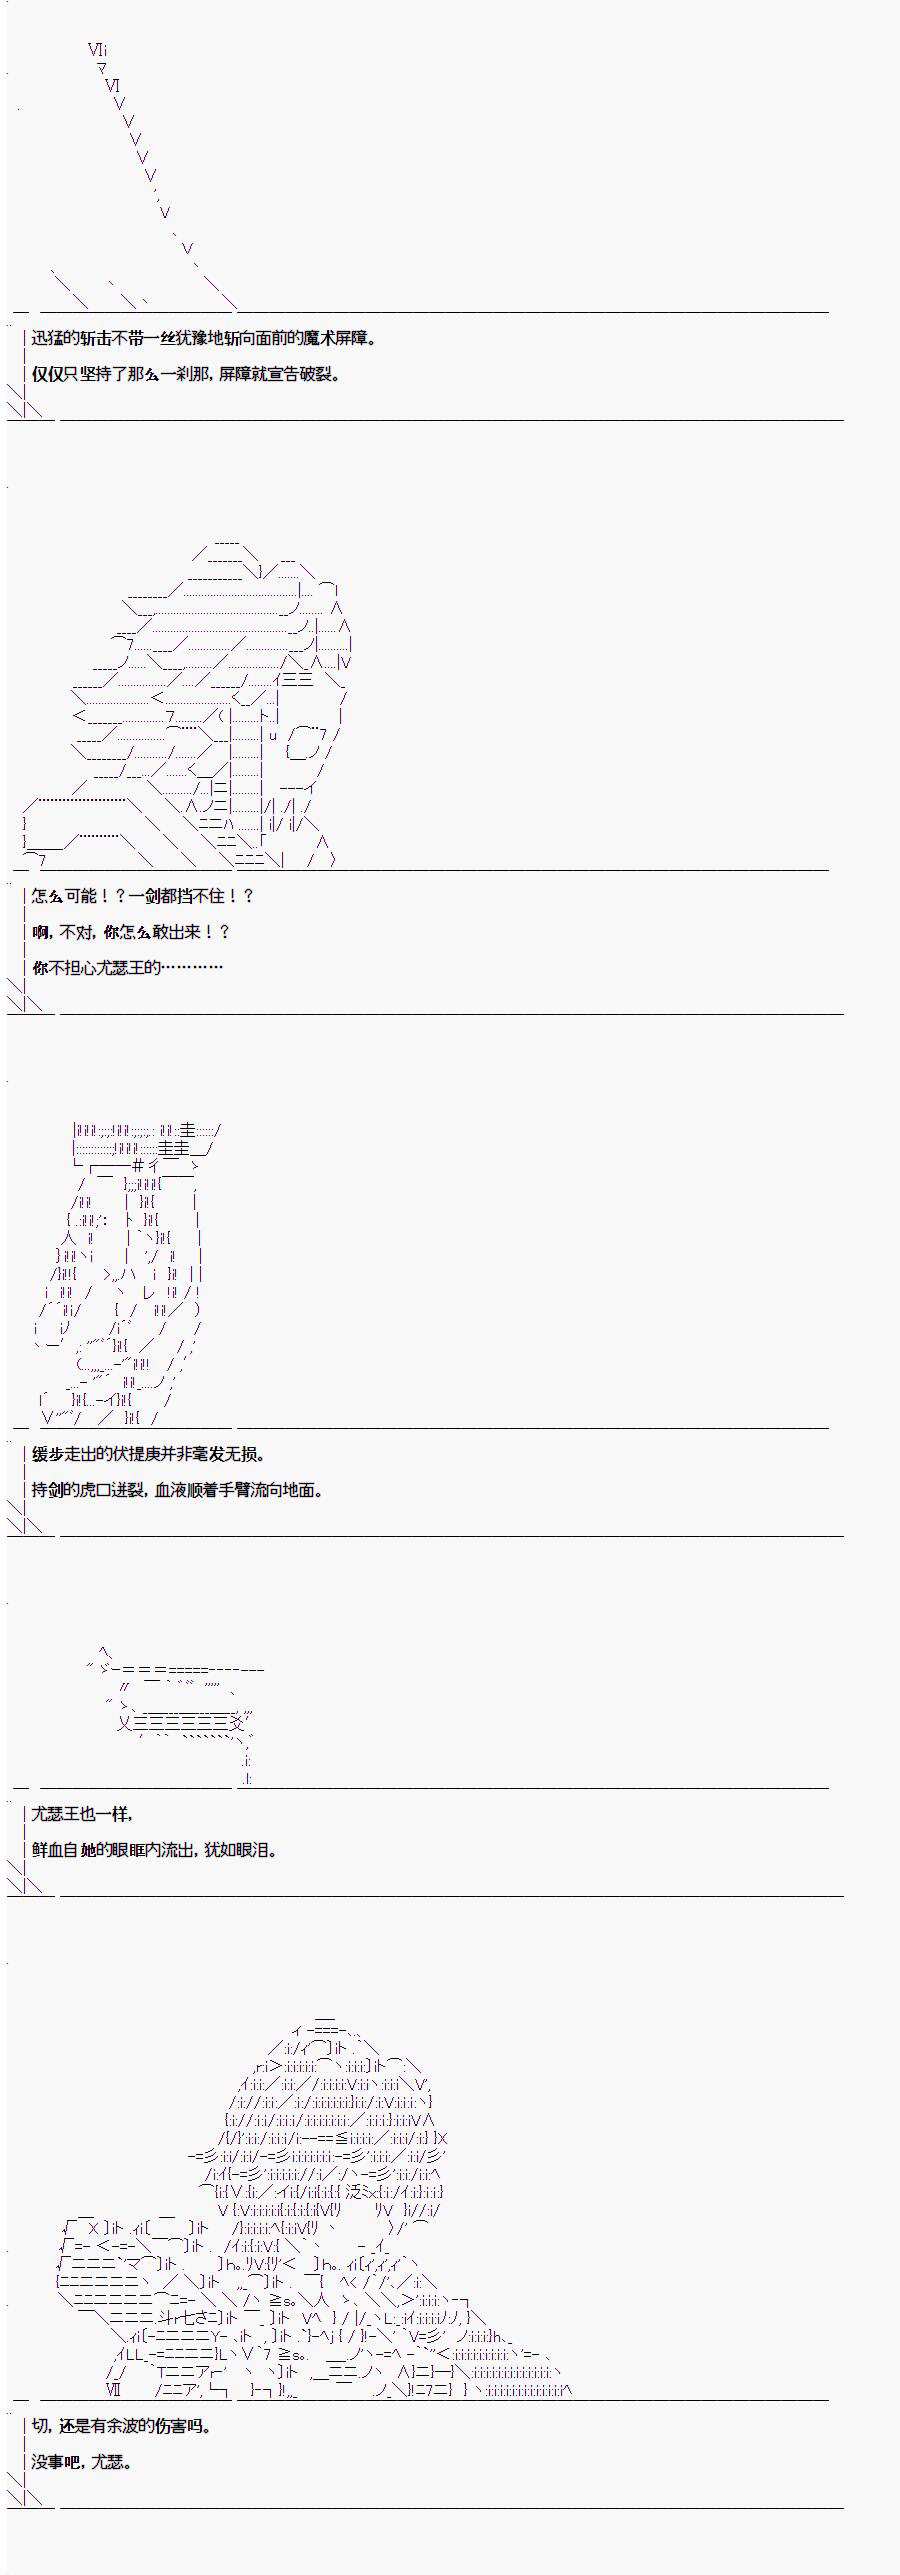 迅猛的斩击不带一丝犹豫地斩向面前的魔术屏障。
仅仅只坚持了那么一刹那，屏障就宣告破裂。
怎么可能！？一剑都挡不住！？
啊，不对，你怎么敢出来！？
你不担心尤瑟王的…………
缓步走出的伏提庚并非毫发无损。
持剑的虎口迸裂，血液顺着手臂流向地面。
尤瑟王也一样，
鲜血自她的眼眶内流出，犹如眼泪。
切，还是有余波的伤害吗。
没事吧，尤瑟。